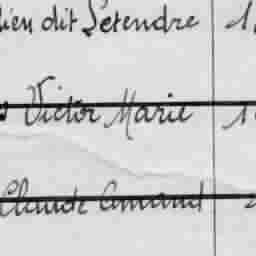 dit Letendre
Victor Marie
Claude Amand